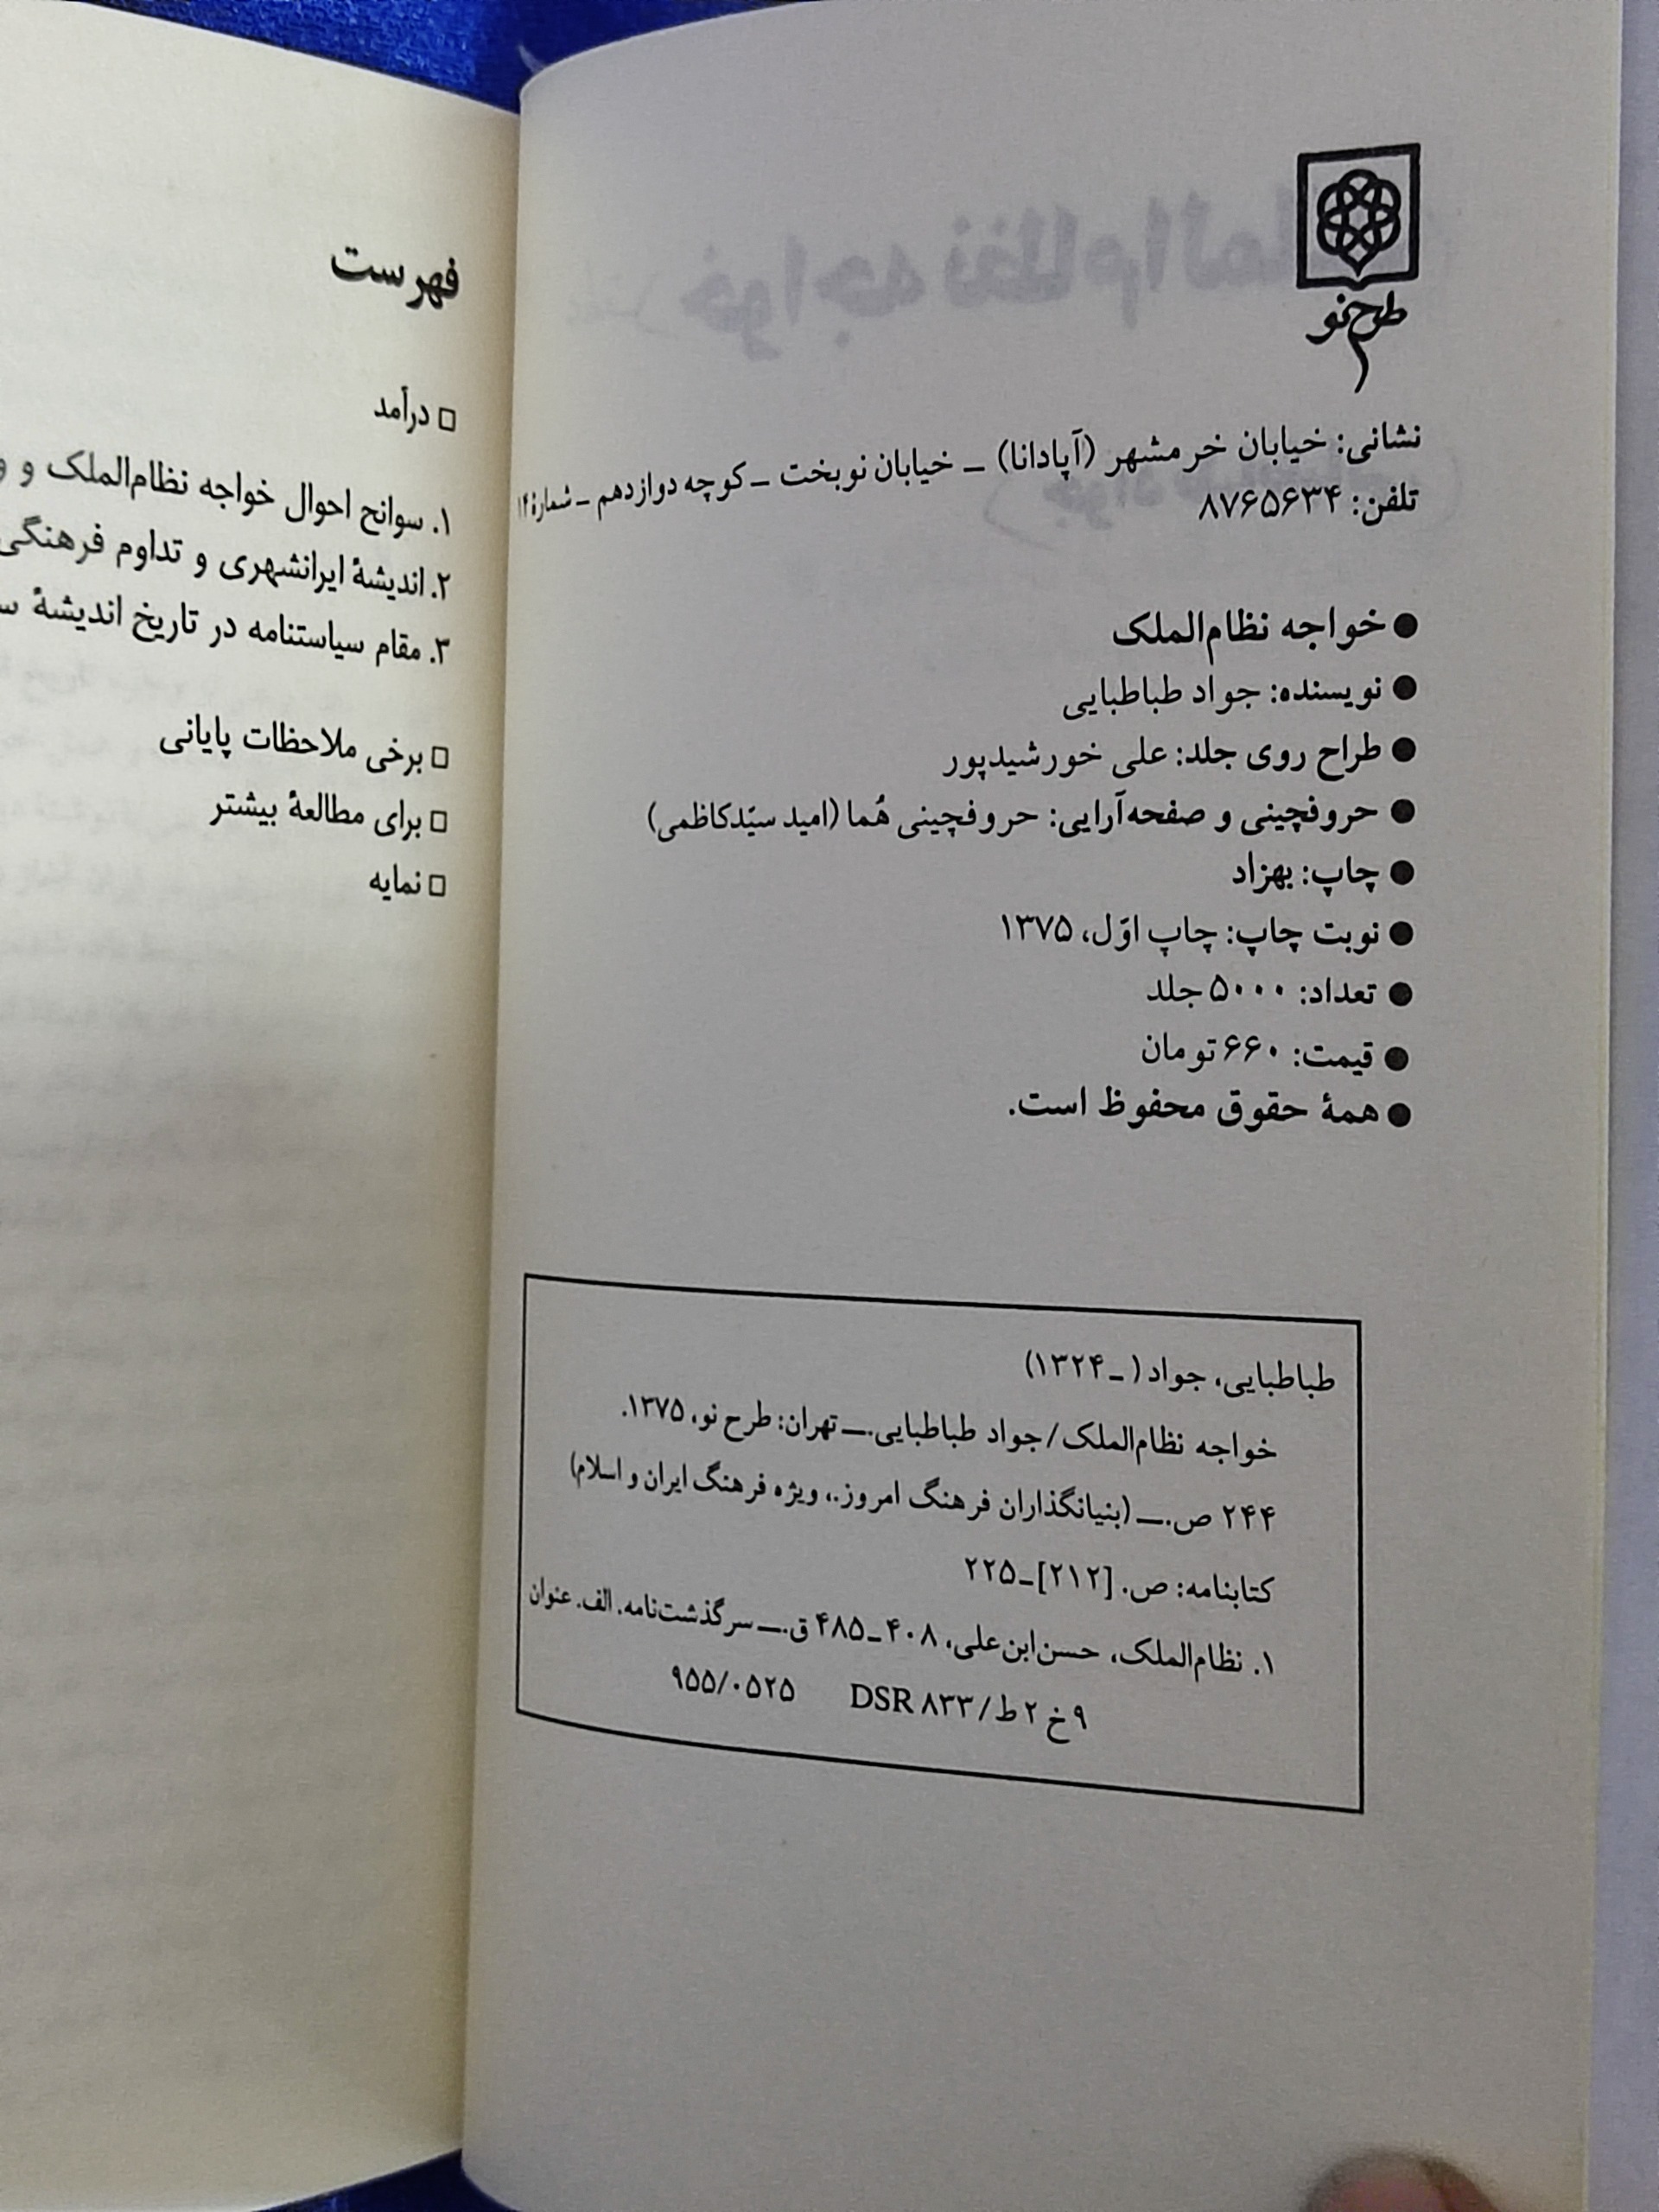 طرح نو
نشانی: خیابان خرمشهر (آپادانا) ـ خیابان نوبخت ـ کوچه دوازدهم ـ شمارهٔ ۱۴
تلفن: ۸۷۶۵۶۳۴
● خواجه نظام‌الملک
● نویسنده: جواد طباطبایی
● طراح روی جلد: علی خورشیدپور
● حروفچینی و صفحه‌آرایی: حروفچینی هُما (امید سیّدکاظمی)
● چاپ: بهزاد
● نوبت چاپ: چاپ اوّل، ۱۳۷۵
● تعداد: ۵۰۰۰ جلد
● قیمت: ۶۶۰ تومان
● همهٔ حقوق محفوظ است.
طباطبایی، جواد ( ـ ۱۳۲۴)
خواجه نظام‌الملک/جواد طباطبایی.ــ تهران: طرح نو، ۱۳۷۵.
۲۴۴ ص.ــ (بنیانگذاران فرهنگ امروز.، ویژه فرهنگ ایران و اسلام)
کتابنامه: ص. [۲۱۲]ـ۲۲۵
۱. نظام‌الملک، حسن‌ابن‌علی، ۴۰۸ ـ ۴۸۵ ق.ــ سرگذشت‌نامه. الف. عنوان
۹ خ ۲ ط/ DSR ۸۳۳ ۹۵۵/۰۵۲۵
فهرست
□ درآمد
۱. سوانح احوال خواجه نظام‌الملک و
۲. اندیشهٔ ایرانشهری و تداوم فرهنگی
۳. مقام سیاستنامه در تاریخ اندیشهٔ
□ برخی ملاحظات پایانی
□ برای مطالعهٔ بیشتر
□ نمایه